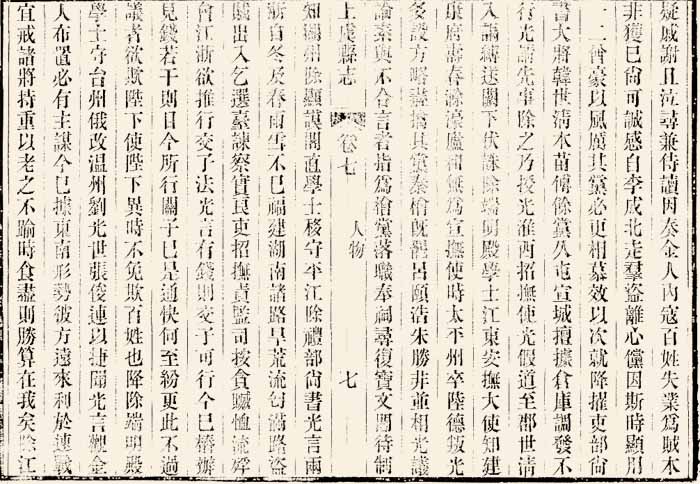 疑威謝且泣尋兼侍讀因奏金人內寇百姓失業爲賊本
非獲已尙可誠感自李成北走羣盜離心儻因斯時顯用
一二酋豪以風厲其黨必更相慕效以次就降擢吏部尙
書大將韓世淸本苗傅餘黨久屯宣城擅據倉庫調發不
行光請先事除之乃授光淮西招撫使光假道至郡世淸
入謁縛送闕下伏誅除端明殿學士江東安撫大使知建
康府壽春滁濠廬和無爲宣撫使時太平州卒陸德叛光
多設方略盡擒其黨秦檜旣罷呂頤浩朱勝非並相光議
論素與不合言者指爲檜黨落職奉祠尋復寶文閣待制
上虞縣志 卷七 人物 七
知湖州除顯謨閣直學士移守平江除禮部尙書光言兩
浙自冬及春雨雪不已福建湖南諸路旱荒流匄滿路盜
賊出入乞選臺諫察實良吏招撫責監司按貪贓恤流殍
會江浙欲推行交子法光言有錢則交子可行今已樁辦
見錢若干則目今所行關子已是通快何至紛更此不過
議者欲欺陛下使陛下異時不免欺百姓也降除端明殿
學士守台州俄改溫州劉光世張俊連以捷聞光言觀金
人布置必有主謀今已據東南形勢彼方遠來利於速戰
宜戒諸將持重以老之不踰時食盡則勝算在我矣除江